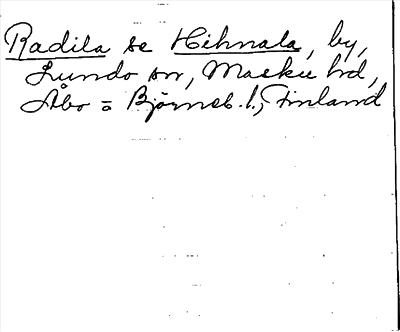 Radila se Hihnala, by,
Lundo sn, Masku hd,
Åbo = Björneb. l., Finland